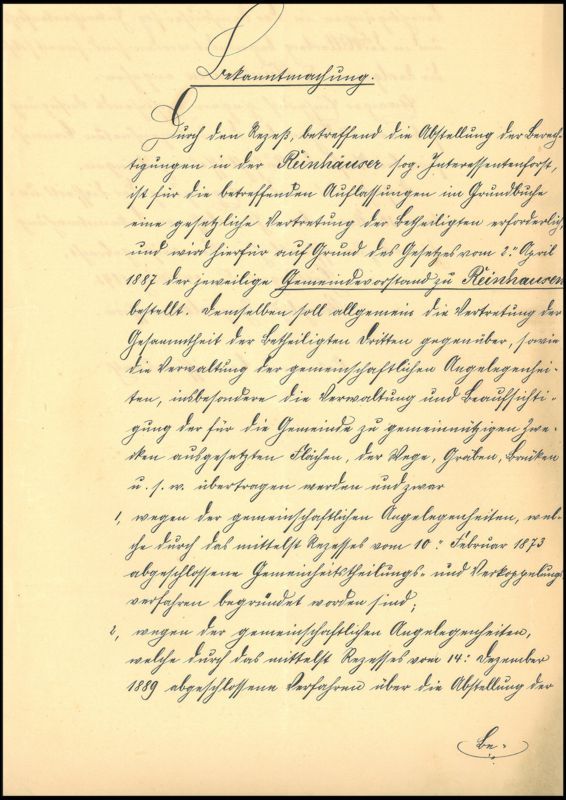 Bekanntmachung.
Durch den Rezeß, betreffend die Abstellung der Berech-
tigungen in der Reinhäuser sog. Interessentenforst,
ist für die betreffenden Auflassungen im Grundbuche
eine gesetzliche Vertretung der Betheiligten erforderlich,
und wird hierfür auf Grund des Gesetzes vom 2. April
1887 der jeweilige Gemeindevorstand zu Reinhausen
bestellt. Demselben soll allgemein die Vertretung der
Gesammtheit der Betheiligten Dritten gegenüber, sowie
die Verwaltung der gemeinschaftlichen Angelegenhei-
ten, insbesondere die Verwaltung und Beaufsichti-
gung der für die Gemeinde zu gemeinnützigen Zwe-
cken ausgesetzten Flächen, der Wege, Gräben, Brücken
u. s. w. übertragen werden und zwar
1, wegen der gemeinschaftlichen Angelegenheiten, wel-
che durch das mittelst Rezesses vom 10. Februar 1873
abgeschlossene Gemeinheitstheilungs- und Verkoppelungs
verfahren begründet worden sind;
2, wegen der gemeinschaftlichen Angelegenheiten,
welche durch das mittelst Rezesses vom 14. Dezember
1889 abgeschlossene Verfahren über die Abstellung der
Be-